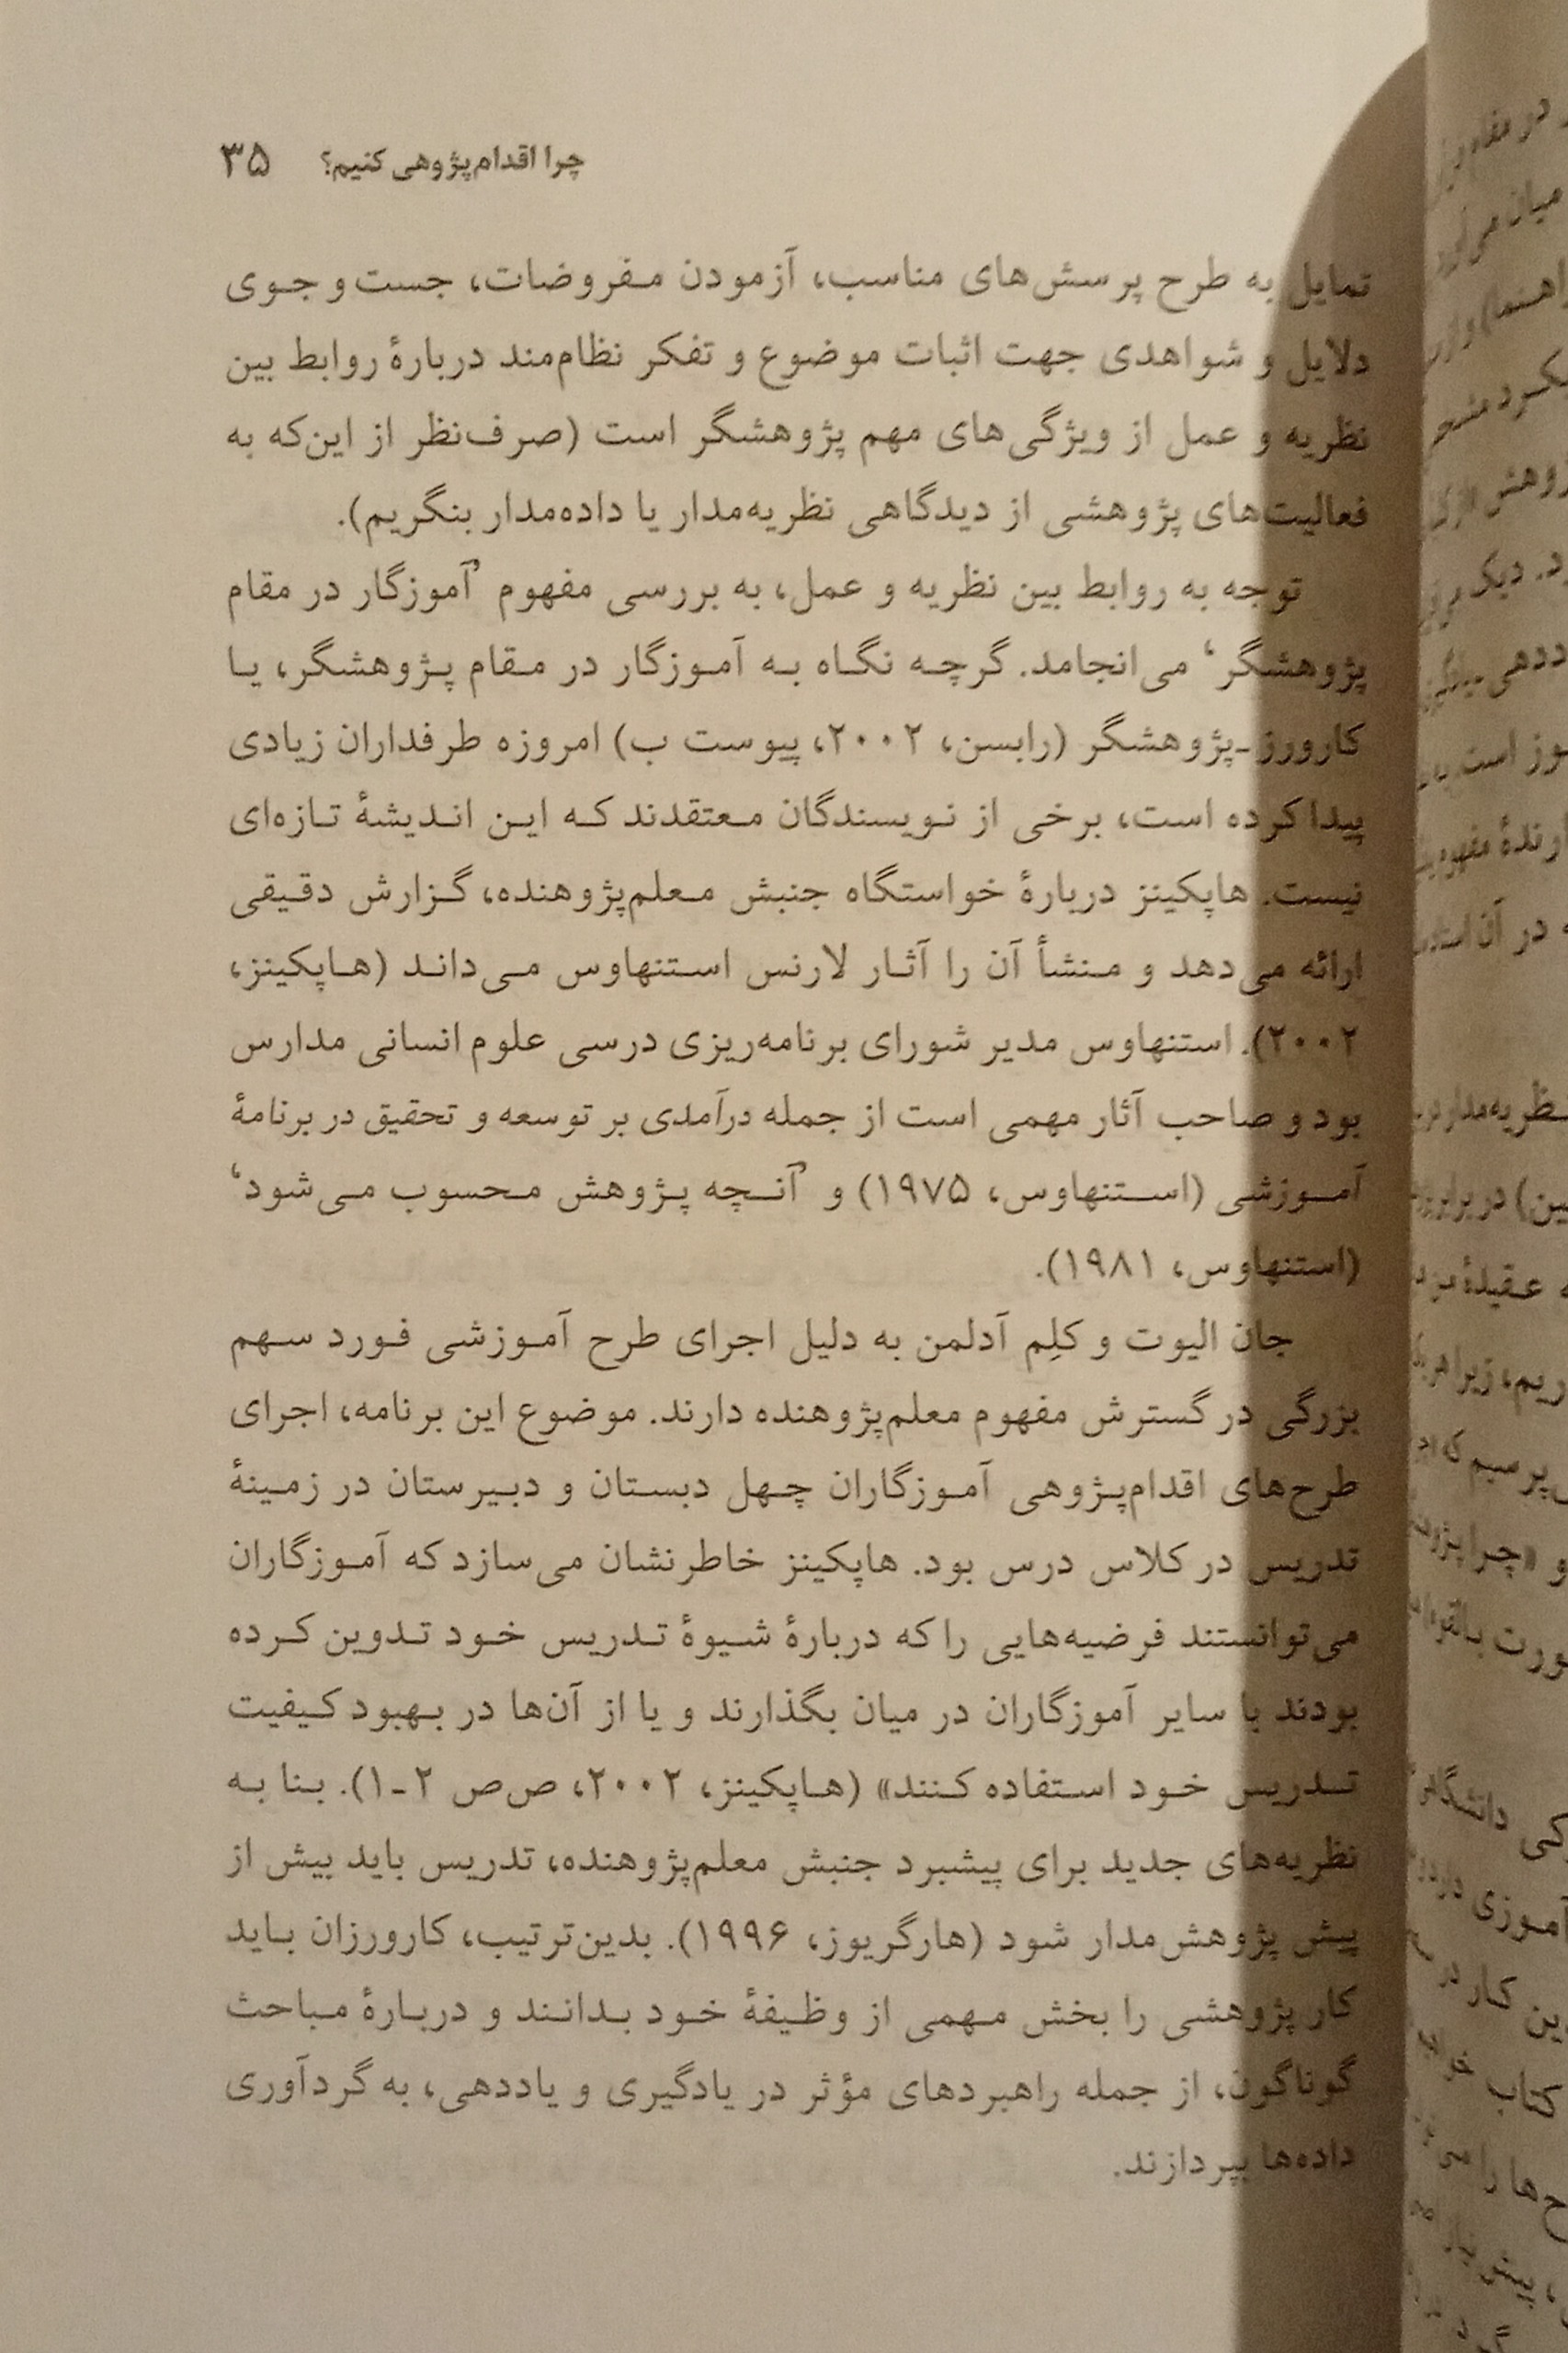 چرا اقدام‌پژوهی کنیم؟ ۳۵
تمایل به طرح پرسش‌های مناسب، آزمودن مفروضات، جست و جوی
دلایل و شواهدی جهت اثبات موضوع و تفکر نظام‌مند دربارهٔ روابط بین
نظریه و عمل از ویژگی‌های مهم پژوهشگر است (صرف‌نظر از این‌که به
فعالیت‌های پژوهشی از دیدگاهی نظریه‌مدار یا داده‌مدار بنگریم).
توجه به روابط بین نظریه و عمل، به بررسی مفهوم ’آموزگار در مقام
پژوهشگر‘ می‌انجامد. گرچه نگاه به آموزگار در مقام پژوهشگر، یا
کارورز-پژوهشگر (رابسن، ۲۰۰۲، پیوست ب) امروزه طرفداران زیادی
پیدا کرده است، برخی از نویسندگان معتقدند که این اندیشهٔ تازه‌ای
نیست. هاپکینز دربارهٔ خواستگاه جنبش معلم‌پژوهنده، گزارش دقیقی
ارائه می‌دهد و منشأ آن را آثار لارنس استنهاوس می‌داند (هاپکینز،
۲۰۰۲). استنهاوس مدیر شورای برنامه‌ریزی درسی علوم انسانی مدارس
بود و صاحب آثار مهمی است از جمله درآمدی بر توسعه و تحقیق در برنامهٔ
آموزشی (استنهاوس، ۱۹۷۵) و ’آنچه پژوهش محسوب می‌شود‘
(استنهاوس، ۱۹۸۱).
جان الیوت و کلِم آدلمن به دلیل اجرای طرح آموزشی فورد سهم
بزرگی در گسترش مفهوم معلم‌پژوهنده دارند. موضوع این برنامه، اجرای
طرح‌های اقدام‌پژوهی آموزگاران چهل دبستان و دبیرستان در زمینهٔ
تدریس در کلاس درس بود. هاپکینز خاطرنشان می‌سازد که آموزگاران
می‌توانستند فرضیه‌هایی را که دربارهٔ شیوهٔ تدریس خود تدوین کرده
بودند با سایر آموزگاران در میان بگذارند و یا از آن‌ها در بهبود کیفیت
تدریس خود استفاده کنند» (هاپکینز، ۲۰۰۲، ص‌ص ۲-۱). بنا به
نظریه‌های جدید برای پیشبرد جنبش معلم‌پژوهنده، تدریس باید بیش از
پیش پژوهش‌مدار شود (هارگریوز، ۱۹۹۶). بدین‌ترتیب، کارورزان باید
کار پژوهشی را بخش مهمی از وظیفهٔ خود بدانند و دربارهٔ مباحث
گوناگون، از جمله راهبردهای مؤثر در یادگیری و یاددهی، به گردآوری
داده‌ها بپردازند.